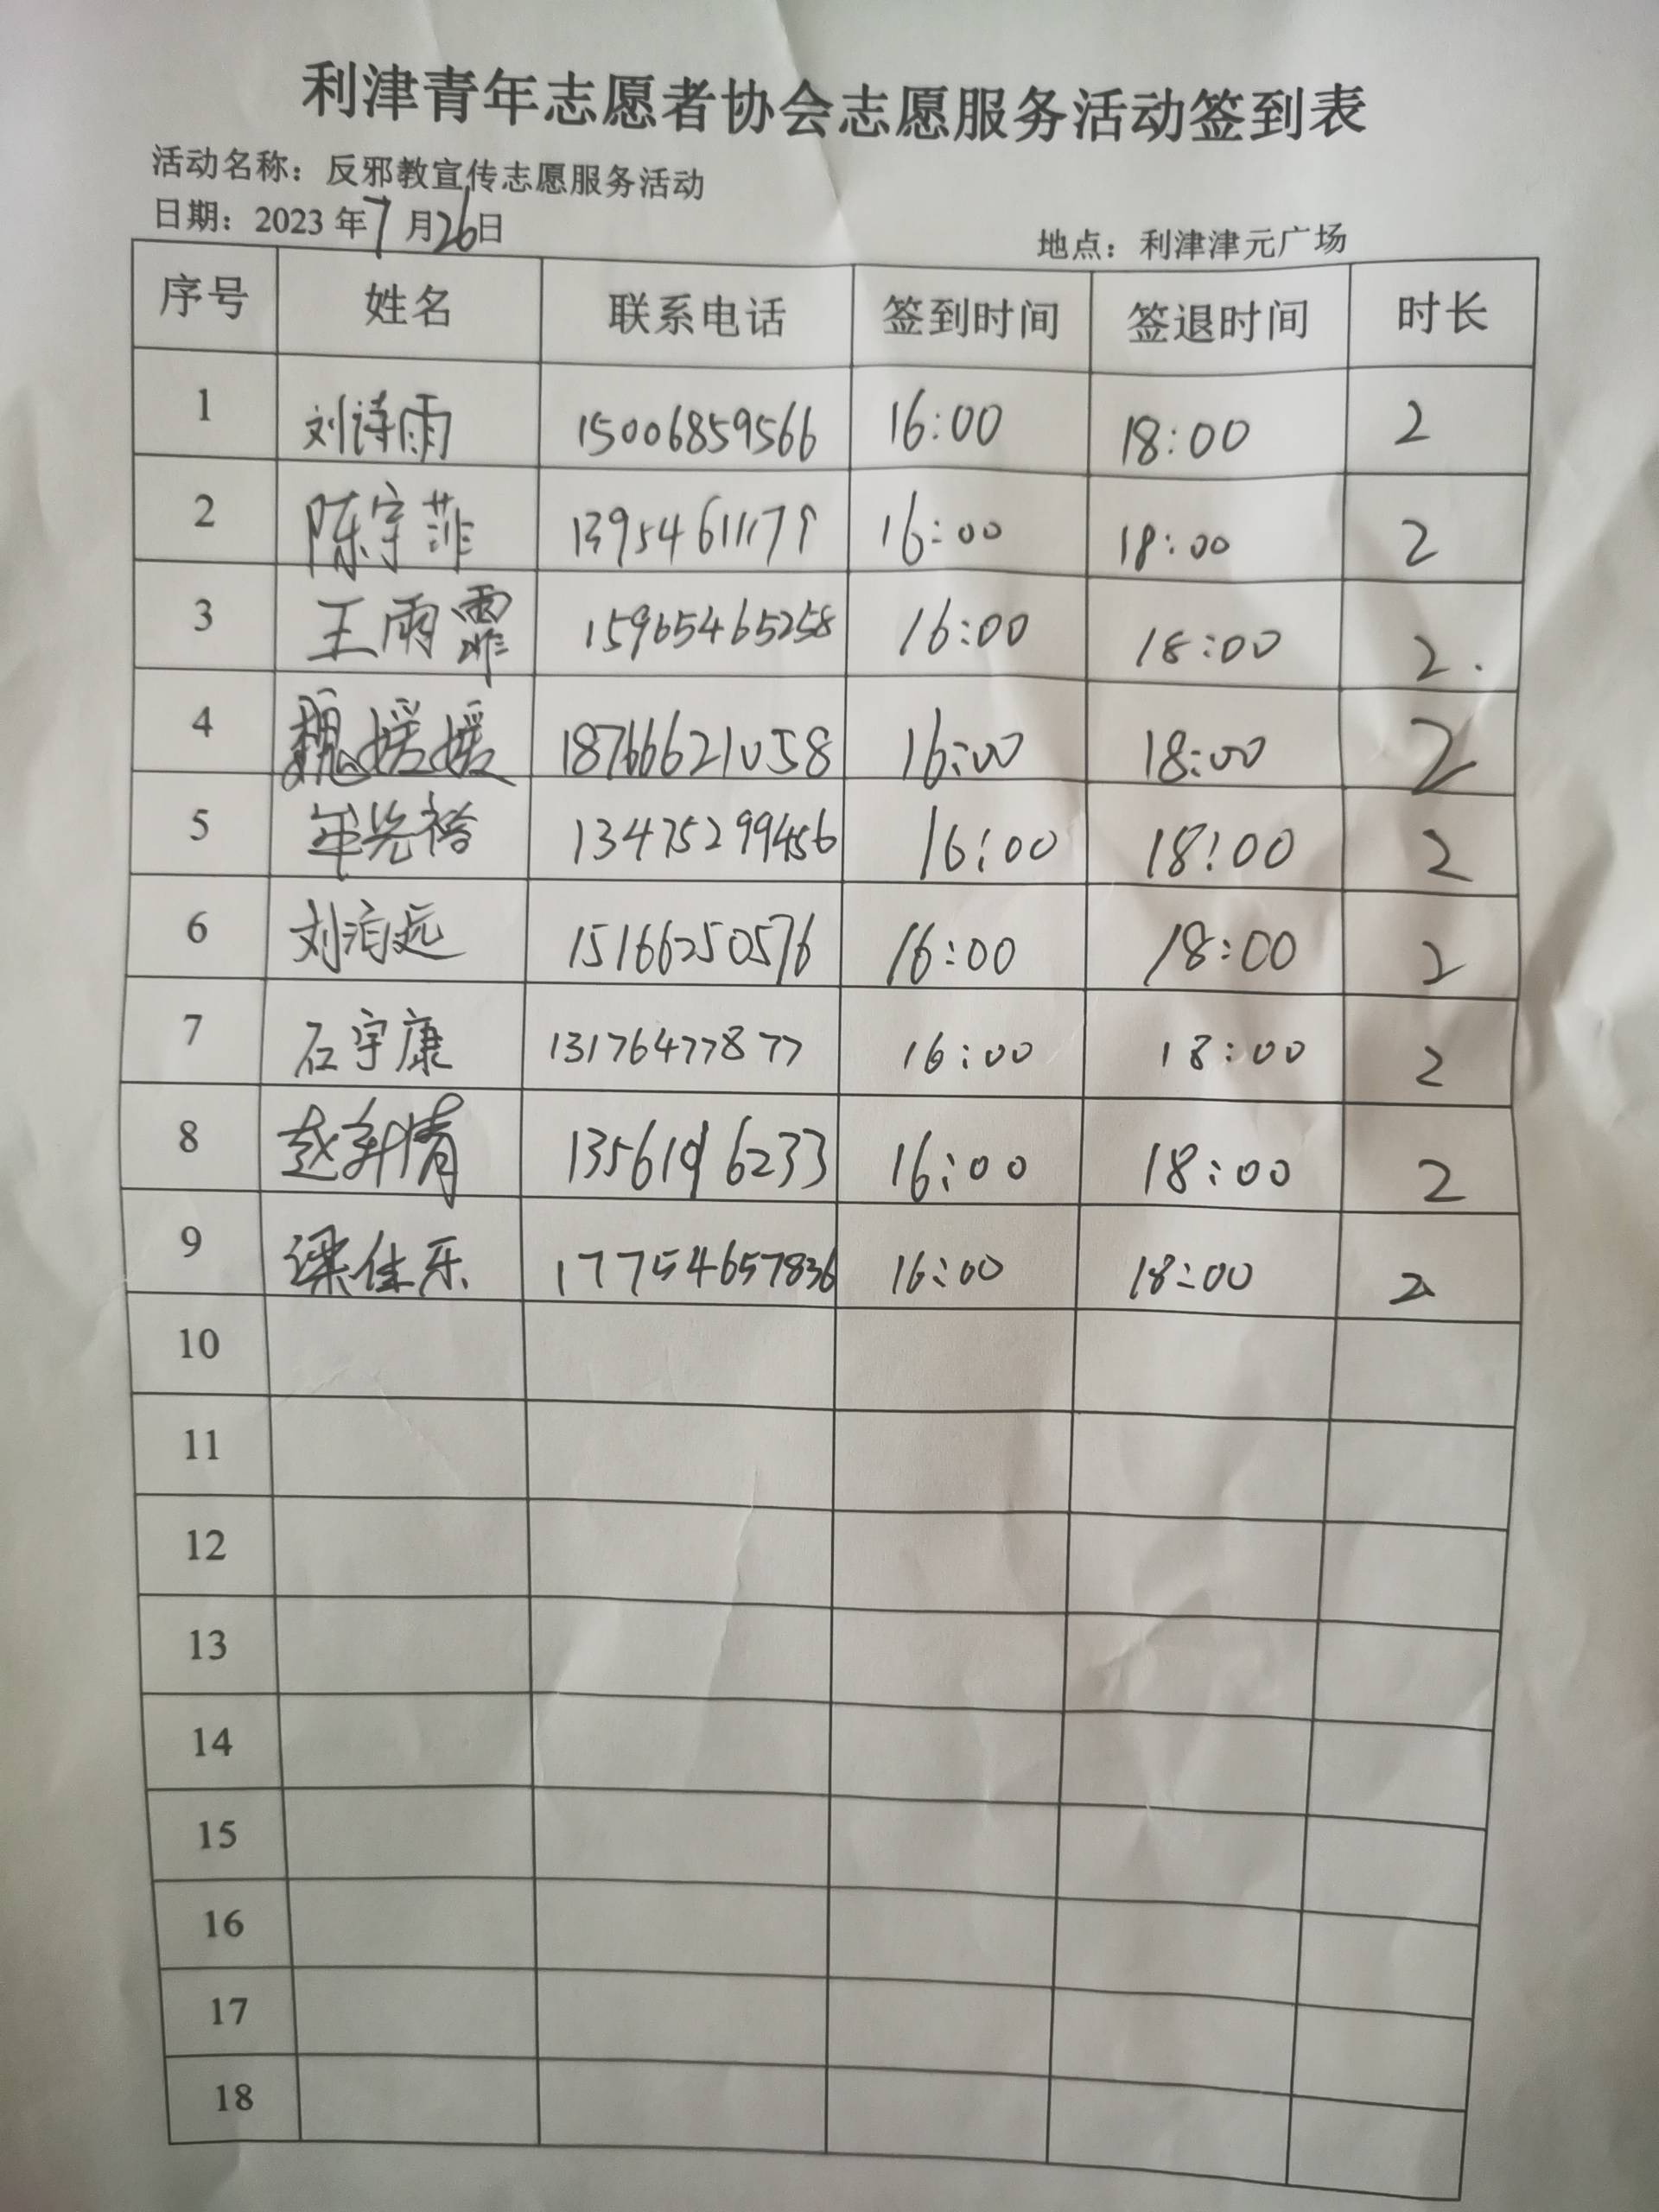 利津青年志愿者协会志愿服务活动签到表
活动名称：反邪教宣传志愿服务活动
日期：2023 年 7 月 26 日 地点：利津津元广场
序号 姓名 联系电话 签到时间 签退时间 时长
1 刘诗雨 15006859566 16:00 18:00 2
2 陈宇菲 13954611179 16:00 18:00 2
3 王雨霏 15965465258 16:00 18:00 2.
4 魏媛媛 18766621058 16:00 18:00 2
5 13475299456 16:00 18:00 2
6 15166250576 16:00 18:00 2
7 石宇康 13176477877 16:00 18:00 2
8 16:00 18:00 2
9 梁佳乐 17754657836 16:00 18:00 2
10
11
12
13
14
15
16
17
18